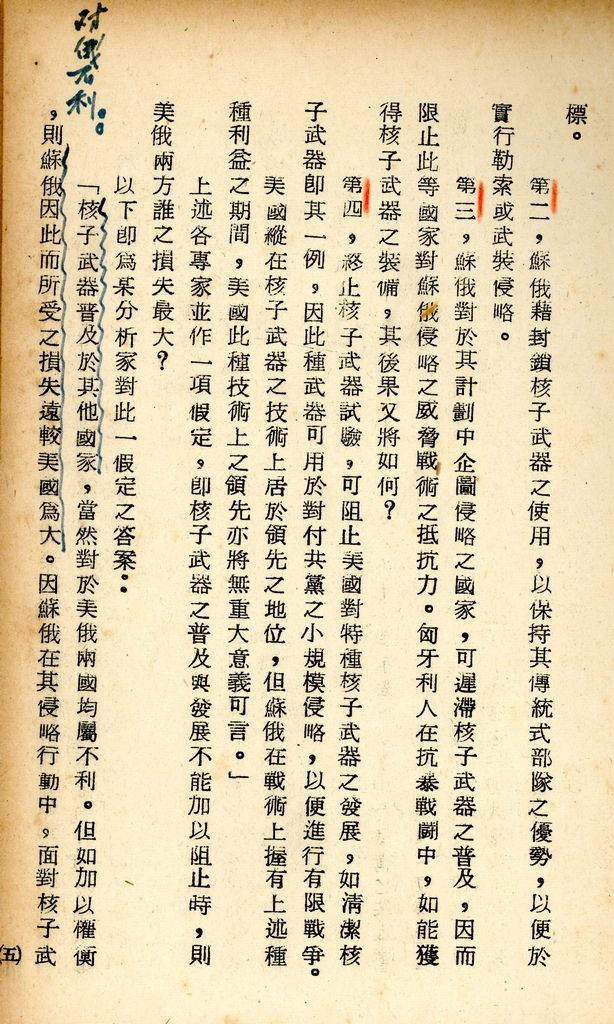 標。
第二，蘇俄藉封鎖核子武器之使用，以保持其傳統式部隊之優勢，以便於
實行勒索或武裝侵略。
第三，蘇俄對於其計劃中企圖侵略之國家，可遲滯核子武器之普及，因而
限止此等國家對蘇俄侵略之威脅戰術之抵抗力。匈牙利人在抗暴戰鬪中，如能獲
得核子武器之裝備，其後果又將如何？
第四，終止核子武器試驗，可阻止美國對特種核子武器之發展，如清潔核
子武器卽其一例，因此種武器可用於對付共黨之小規模侵略，以便進行有限戰爭。
美國縱在核子武器之技術上居於領先之地位，但蘇俄在戰術上握有上述種
種利益之期間，美國此種技術上之領先亦將無重大意義可言。」
上述各專家並作一項假定，卽核子武器之普及與發展不能加以阻止時，則
美俄兩方誰之損失最大？
以下卽爲某分析家對此一假定之答案：
「核子武器普及於其他國家，當然對於美俄兩國均屬不利。但如加以權衡
，則蘇俄因此而所受之損失遠較美國爲大。因蘇俄在其侵略行動中，面對核子武
对俄不利。
(五)